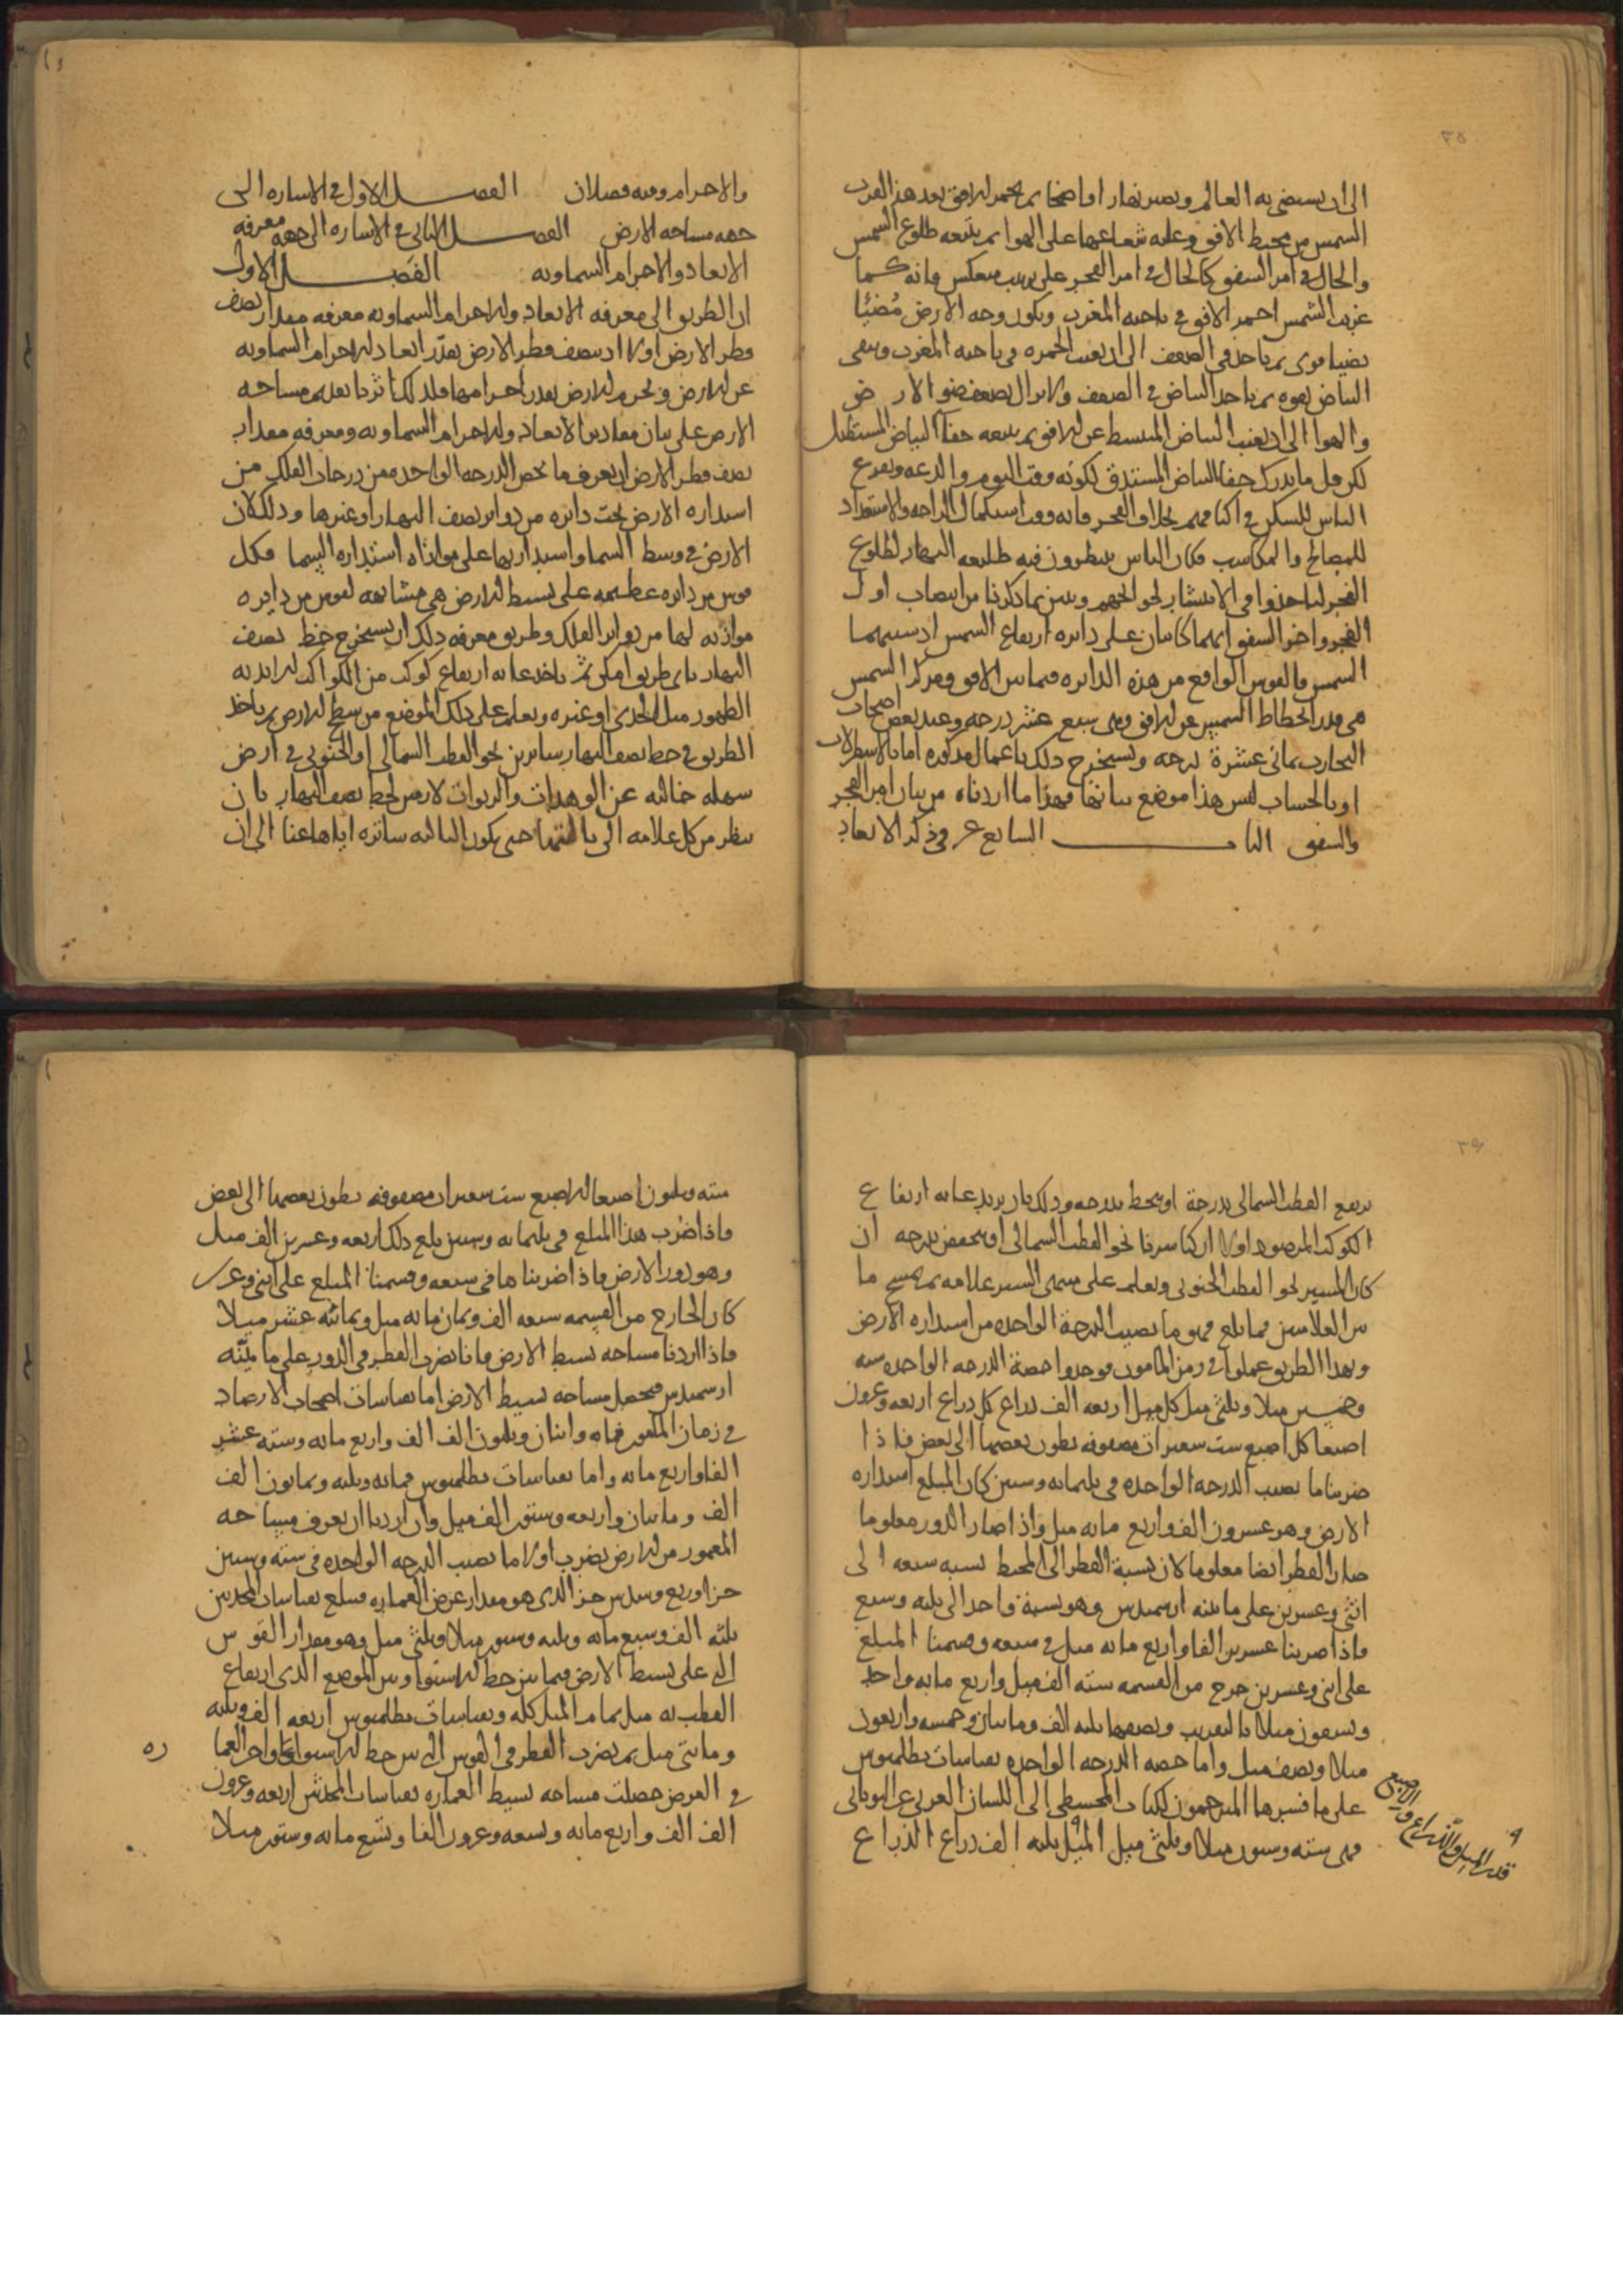 ٣٥
الى ان يستضي به العالم ويصير نهارا واضحا ثم يحمر الافق بعد هذا لقرب
الشمس من محيط الافق وعليه شعاعها على الهوا ثم يتبعه طلوع الشمس
والحال في امر الشفق كالحال في امر الفجر على ترتيب منعكس فانه كما
غربت الشمس احمر الافق في ناحيه المغرب ويكون وجه الارض مُضيئا
بضياء قوى ثم ياخذ في الضعف الى ان يغيب الحمره في ناحيه المغرب ويبقى
البياض بقوه ثم ياخذ البياض في الضعف ولا يزال يضعف ضو الارض
والهوا الى ان يغيب البياض المنبسط عن الافق ثم يتبعه خفا البياض المستطيل
لكن قل ما يدرك خفا البياض المستدق لكونه وقت النوم والدعه وتفرع
الناس للسكن في اكنافهم بخلاف الفجر فانه وقت استكمال الراحه والاستعداد
للمصالح والمكاسب فكان الناس ينتظرون فيه طليعه النهار لطلوع
الفجر لياخذوا في الانتشار لحوائجهم وتبين بما ذكرنا من انتصاب اول
الفجر واخر الشفق انهما كائنان على دائره ارتفاع الشمس اذ سببهما
الشمس فالقوس الواقع من هذه الدائره فيما بين الافق ومركز الشمس
هي قدر انحطاط الشمس عن الافق وهى سبع عشر درجه وعند بعض اصحاب
التجارب ثماني عشرة درجه ويستخرج ذلك باعمال مذكوره اما بالاسطرلاب
او بالحساب ليس هذا موضع بيانها فهذا ما اردناه من بيان امر الفجر
والشفق الباب السابع عشر في ذكر الابعاد
والاجرام وفيه فصلان الفصل الاول في الاشاره الى
جهه مساحه الارض الفصل الثاني في الاشاره الى جهه معرفه
الابعاد والاجرام السماويه الفصل الاول
ان الطريق الى معرفه الابعاد والاجرام السماويه معرفه مقدار نصف
قطر الارض اولا اذ بنصف قطر الارض يقدّر ابعاد الاجرام السماويه
عن الارض وبجرم الارض يقدر اجرامها فلذلك اثرنا تقديم مساحه
الارض على بيان مقادير الابعاد والاجرام السماويه ومعرفه مقدار
نصف قطر الارض ان يعرف ما يخص الدرجه الواحده من درجات الفلك من
استداره الارض تحت دائره من دوائر نصف النهار او غيرها وذلك لان
الارض في وسط السما واستدارتها على موازاه استداره السما فكل
قوس من دائره عظيمه على بسيط الارض هي مشابهه لقوس من دايره
موازيه لها من دوائر الفلك وطريق معرفه ذلك ان يستخرج خط نصف
النهار باى طريق امكن ثم ياخذ غايه ارتفاع كوكب من الكواكب الابديه
الظهور مثل الجدي او غيره ويعلم على ذلك الموضع من سطح الارض ثم ياخذ
الطريق في خط نصف النهار سائرين نحو القطب الشمالى او الجنوبي في ارض
سهله خاليه عن الوهدات والربوات لازمين لخط نصف النهار بان
ينظر من كل علامه الى حتى يكون الثانيه ساتره اياها عنا الى ان
٣٦
يرتفع القطب الشمالى بدرجة او ينحط بدرجه وذلك بان يزيد غايه ارتفاع
الكوكب المرصود اولا ان كنا سرنا نحو القطب الشمالي او ينخفض بدرجه ان
كان المسير نحو القطب الجنوبي ونعلم على منتهى السير علامه ثم نمسح ما
بين العلامتين فما بلغ فهو ما نصيب الدرجة الواحده من استداره الارض
وبهذا الطريق عملوا في زمن المامون فوجدوا حصة الدرجه الواحده سته
وخمسين ميلا وثلثى ميل كل ميل اربعه الف ذراع كل ذراع اربعه وعرون
اصبعا كل اصبع ست شعيرات مصفوفه بطون بعضها الى بعض فاذا
ضربنا ما نصيب الدرجه الواحده في ثلثمائه وستين كان المبلغ استداره
الارض وهو عشرون الف واربع مائه ميل واذا صار الدور معلوما
صار القطر ايضا معلوما لان نسبة القطر الى المحيط نسبه سبعه الى
اثنى وعشرين على ما بينه ارسميدس وهو نسبة واحد الى ثلثه وسبع
فاذا ضربنا عشرين الفا واربع مائه ميل في سبعه وقسمنا المبلغ
على اثنى وعشرين خرج من القسمه سته الف ميل واربع مايه واحد
وتسعون ميلا بالتقريب ونصفها ثلثه الف ومائتان وخمسه واربعون
ميلا ونصف ميل واما حصه الدرجه الواحده بقياسات بطلميوس
على ما فسرها المترجمون لكتاب المجسطي الى اللسان العربي عن اليوناني
فهى سته وستون ميلا وثلثى ميل الميل ثلثه الف ذراع الذراع
قدر الميل والذراع والاصبع
سته وثلثون اصبعا الاصبع ست شعيرات مصفوفه بطون بعضها الى بعض
فاذا ضرب هذا المبلغ في ثلثمائه وستين بلغ ذلك اربعه وعشرين الف ميل
وهو دور الارض فاذا ضربناها في سبعه وقسمنا المبلغ على اثنى وعرين
كان الخارج من القسمه سبعه الف وثمان مائه ميل وثمانيه عشر ميلا
فاذا اردنا مساحه بسيط الارض فانا نضرب القطر في الدور على ما بيّنه
ارسميدس فيحصل مساحه بسيط الارض اما بقياسات اصحاب الارصاد
في زمان المامون فمائه واثنان وثلثون الف الف واربع مائه وسته عشر
الفا واربع مائه واما بقياسات بطلميوس فمائه وثلثه وثمانون الف
الف ومائتان واربعه وستون الف ميل وان اردنا ان نعرف مساحه
المعمور من الارض نضرب اولا ما نصيب الدرجه الواحده في سته وستين
جزا وربع وسدس جز الذى هو مقدار عرض العماره فيبلغ بقياسات المحدثين
ثلثه الف وسبع مائه وثلثه وستون ميلا وثلثى ميل وهو مقدار القوس
التي على بسيط الارض فيما بين خط الاستوا وبين الموضع الذى ارتفاع
القطب به مثل تمام الميل كله وبقياسات بطلميوس اربعه الف وثلثه
ومائتى ميل ثم نضرب القطر في القوس التي بين خط الاستوا واخر العما
ره
في العرض حصلت مساحه بسيط العماره بقياسات المحدثين اربعه وعرون
الف الف واربع مائه وتسعه وعرون الفا وتسع مائه وستون ميلا